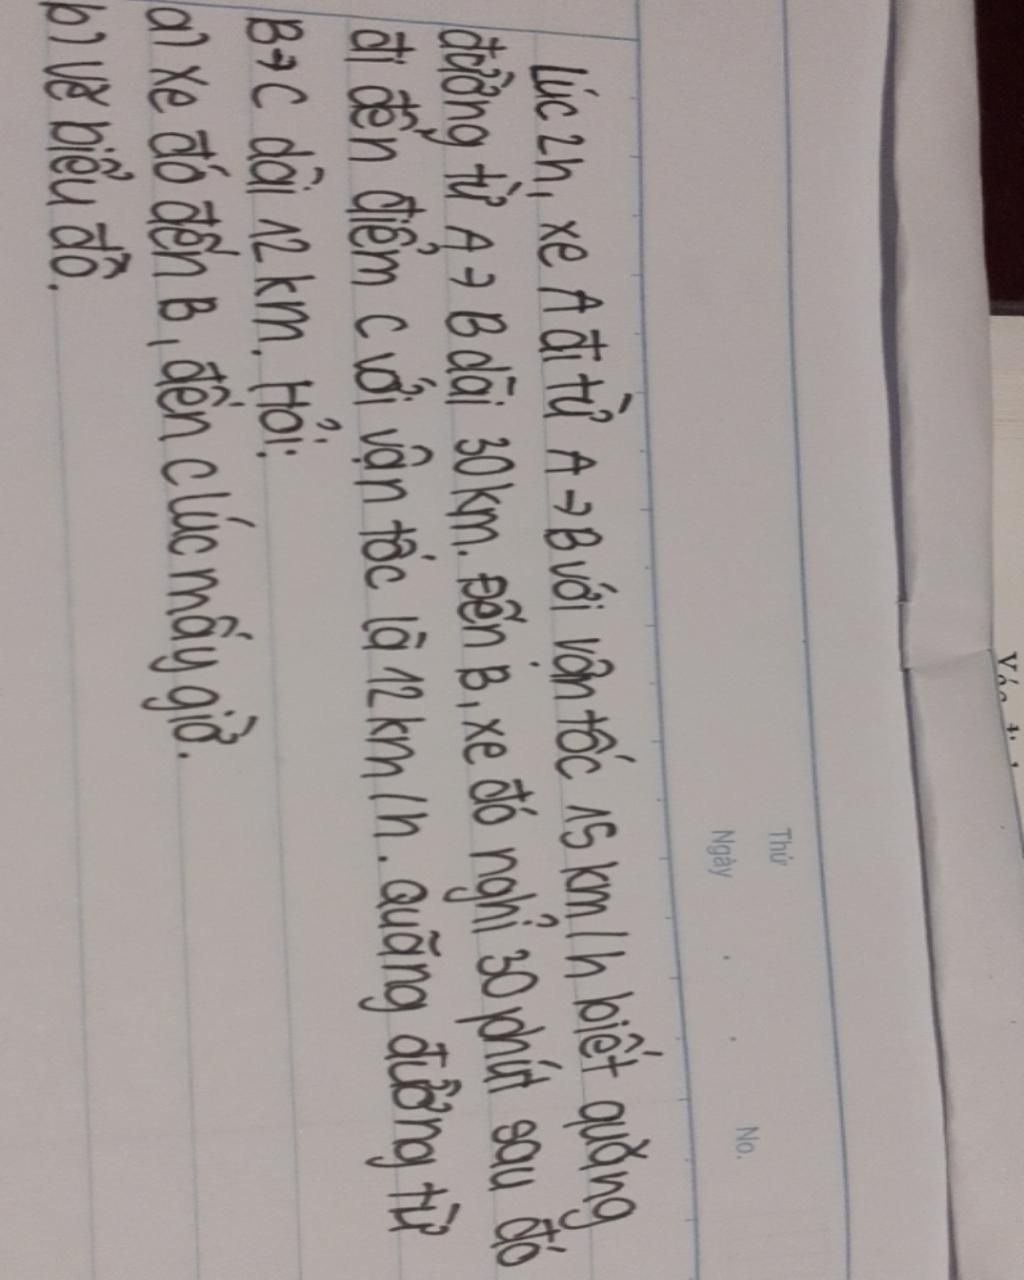 Thứ
Ngày . . No.
Lúc 2h, xe A đi từ A → B với vận tốc 15 km/h biết quãng
đường từ A → B dài 30km. Đến B, xe đó nghỉ 30 phút sau đó
đi đến điểm C với vận tốc là 12km/h. quãng đường từ
B → C dài 12 km. Hỏi:
a) xe đó đến B, đến C lúc mấy giờ.
b) vẽ biểu đồ.